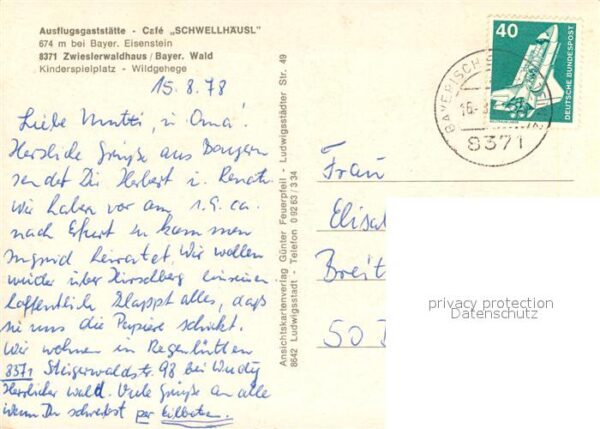 Ausflugsgaststätte - Café „SCHWELLHÄUSL"
674 m bei Bayer. Eisenstein
8371 Zwieslerwaldhaus / Bayer. Wald
Kinderspielplatz - Wildgehege
15.8.78
Liebe Mutti, u Oma!
Herzliche Grüße aus Bayern
sendet Dir Herbert u. Renate
Wir haben vor am 1.9. ca.
nach Erfurt zu kommen
Ingrid heiratet. Wir wollen
wieder über Hirschberg einreisen
hoffentlich klappt alles, daß
sie uns die Papiere schickt.
Wir wohnen in Regenhütten
8371 Steigerwaldstr. 98 bei
Herrlicher Wald. Viele Grüße an alle
wenn Du schreibst per Eilboten.
Ansichtskartenverlag Günter Feuerpfeil - Ludwigsstädter Str. 49
8642 Ludwigsstadt - Telefon 0 92 63 / 3 34
40
DEUTSCHE BUNDESPOST
BAYERISCH
8371
Frau
Elisa
Breit
50
privacy protection
Datenschutz